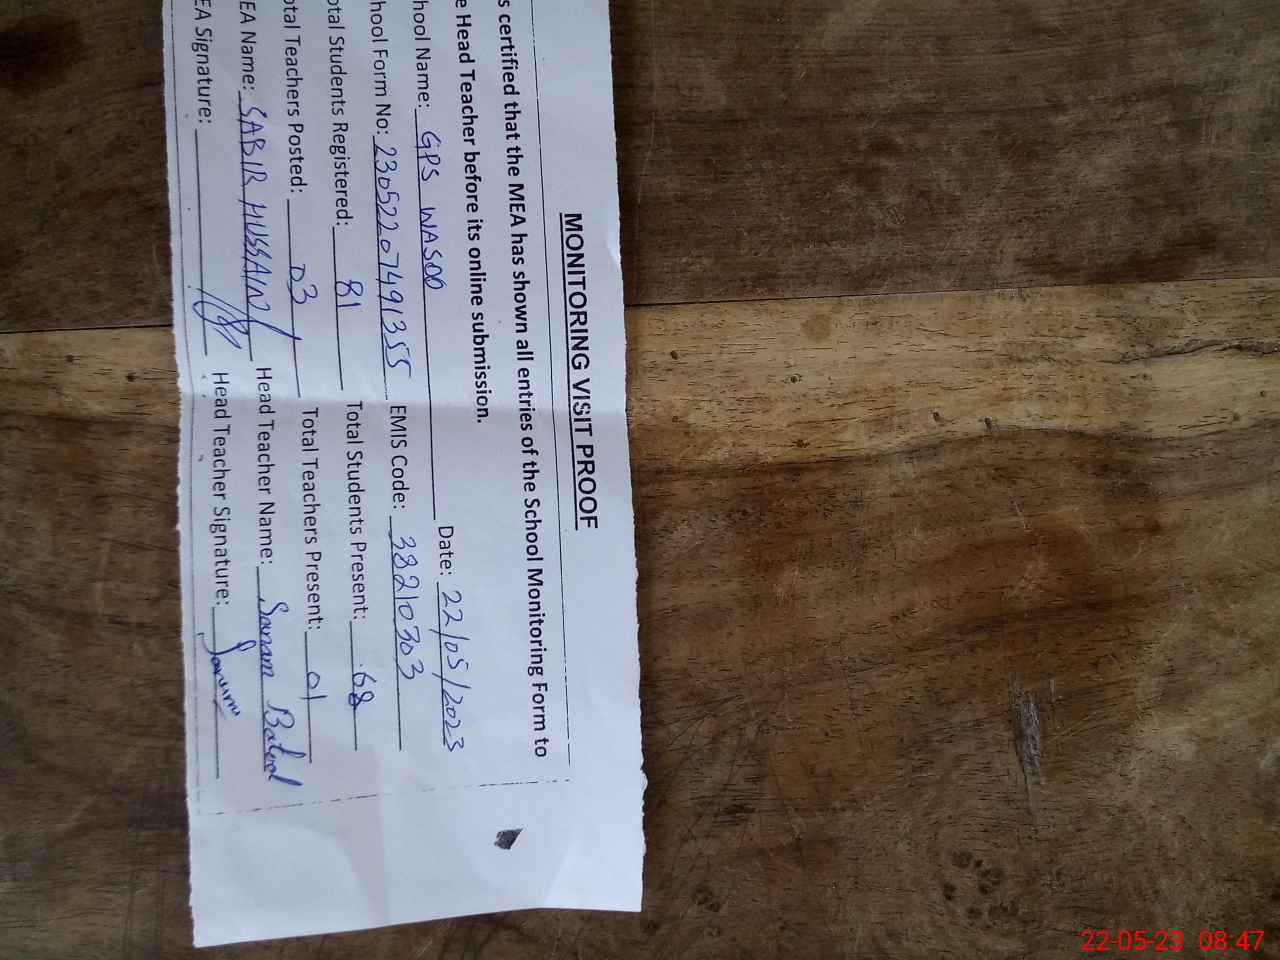 MONITORING VISIT PROOF
s certified that the MEA has shown all entries of the School Monitoring Form to
e Head Teacher before its online submission.
hool Name: GPS WASOO Date: 22/05/2023
hool Form No: 23052207491355 EMIS Code: 38210303
otal Students Registered: 81 Total Students Present: 68
otal Teachers Posted: 03 Total Teachers Present: 01
EA Name: SABIR HUSSAIN Head Teacher Name: Sanam Batool
EA Signature: Head Teacher Signature:
22-05-23 08:47